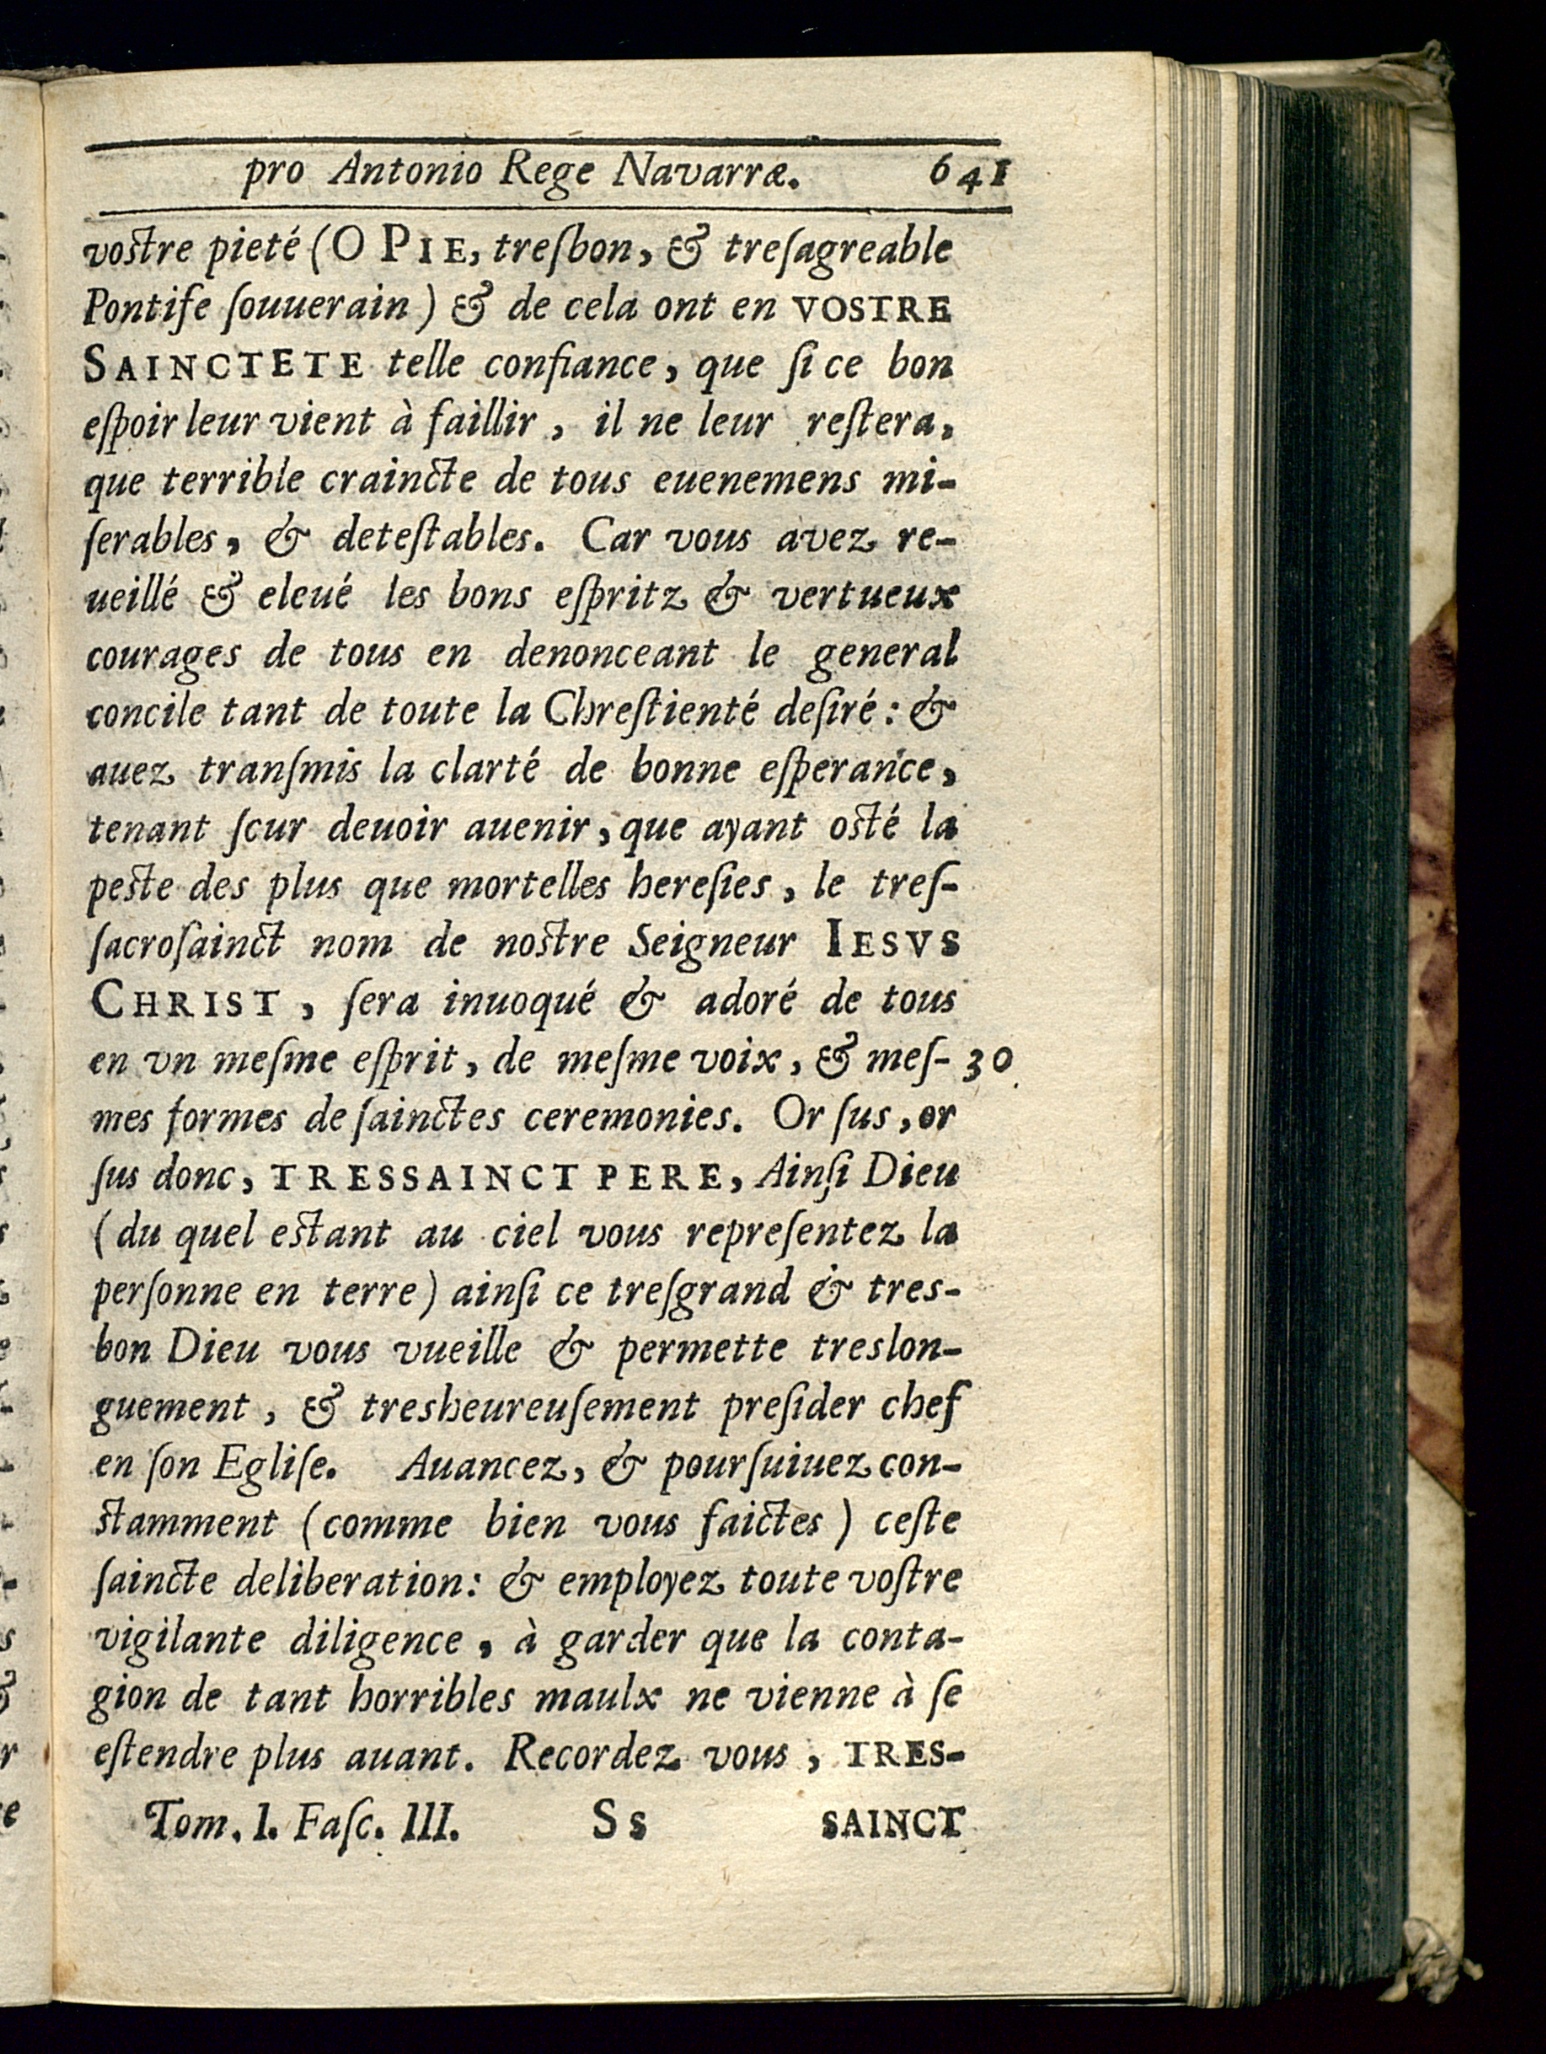 pro Antonio Rege Navarræ. 641
voſtre pieté (O PIE, treſbon, & treſagreable
Pontife ſouuerain) & de cela ont en VOSTRE
SAINCTETE telle confiance, que ſi ce bon
eſpoir leur vient à faillir, il ne leur reſtera,
que terrible craincte de tous euenemens mi-
ſerables, & deteſtables. Car vous avez re-
ueillé & eleué les bons eſpritz & vertueux
courages de tous en denonceant le general
concile tant de toute la Chreſtienté deſiré: &
auez tranſmis la clarté de bonne eſperance,
tenant ſcur deuoir auenir, que ayant oſté la
peſte des plus que mortelles hereſies, le treſ-
ſacroſainct nom de noſtre Seigneur IESVS
CHRIST, ſera inuoqué & adoré de tous
en vn meſme eſprit, de meſme voix, & meſ- 30
mes formes de ſainctes ceremonies. Or ſus, or
ſus donc, TRESSAINCT PERE, Ainſi Dieu
(du quel eſtant au ciel vous repreſentez la
perſonne en terre) ainſi ce treſgrand & tres-
bon Dieu vous vueille & permette treslon-
guement, & tresheureuſement preſider chef
en ſon Egliſe. Auancez, & pourſuiuez con-
ſtamment (comme bien vous faictes) ceſte
ſaincte deliberation: & employez toute voſtre
vigilante diligence, à garder que la conta-
gion de tant horribles maulx ne vienne à ſe
eſtendre plus auant. Recordez vous, TRES-
Tom. I. Faſc. III. Ss SAINCT